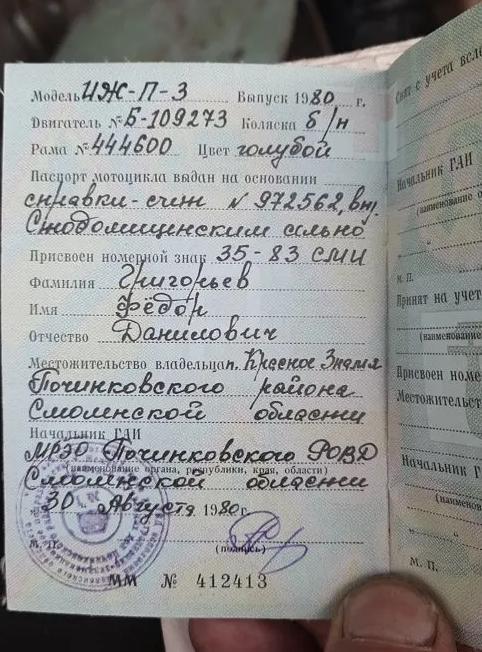 Модель ИЖ-П-3 Выпуск 1980 г.
Двигатель № Б-109273 Коляска б/н
Рама № 444600 Цвет голубой
Паспорт мотоцикла выдан на основании
справки-счет № 972562, выд.
Стодолищенским сельпо
Присвоен номерной знак 35-83 СМИ
Фамилия Григорьев
Имя Фёдор
Отчество Данилович
Местожительство владельца п. Красное Знамя
Починковского района
Смоленской области
Начальник ГАИ
МРЭО Починковского РОВД
(наименование органа, республики, края, области)
Смоленской области
„30" Августа 1980г.
М. П. (подпись)
ММ № 412413
Снят с учета всле
Начальник ГАИ
(наименование о
М. П.
Принят на учет
(наименование
Присвоен номе
Местожительст
Начальник Г
(наименован
М. П.